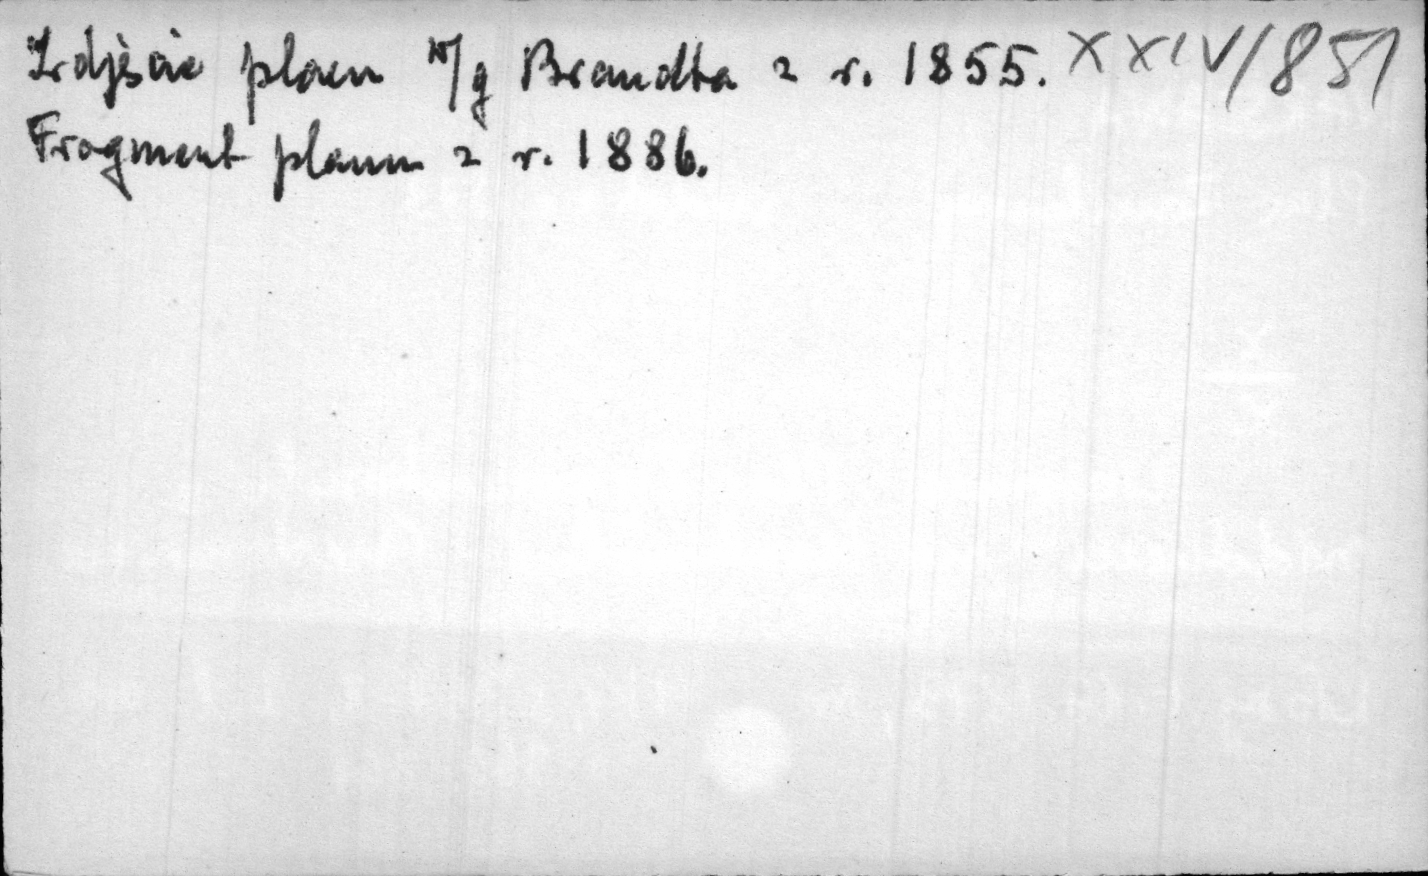 Zdjęcie planu w/g Brandta z r. 1855. XXIV/851
Fragment planu z r. 1886.